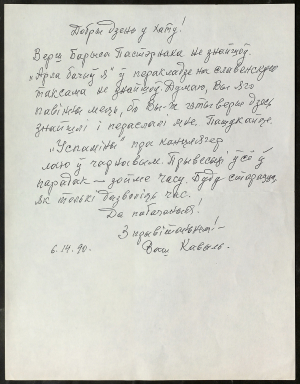 Добры дзень у Хату!
Верш Барыса Пастэрнака не знайшоў.
„Арла бачыў я" ў перакладзе на славенскую
таксама не знайшоў. Думаю, Вы яго
павінны мець, бо Вы-ж гэты верш
знайшлі і пераслалі мне. Пашукайце.
„Успаміны" пра
маю ў чарнавым. Прывесці ўсё ў
парадак — зойме часу. Буду старацца,
як толькі дазволіць час.
Да пабачэньня!
З прывітаньнем! —
6.14.90. Ваш Кавыль.